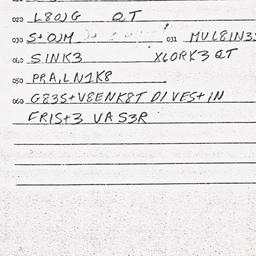 020 L8OJG QT
030 S+OJM 031 MVL8IN3S
040 SINK3 XLORK3 QT
050 PRA,LN1K8
060 G83S+V8ENK8T DIVES+IN
FRIS+3 VAS3R